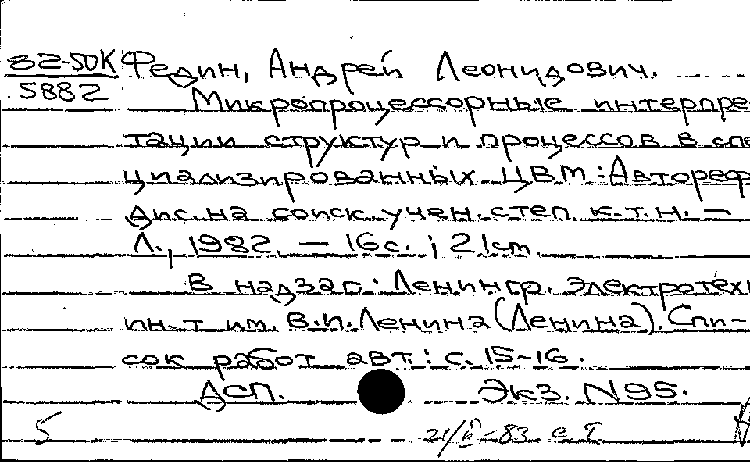 82-50К Федин, Андрей Леонидович.
5882 Микропроцессорные интерпре
тации структур и процессов в спе
циализированных ЦВМ: Автореф
Дис. на соиск. учен. степ. к.т.н. —
Л., 1982. — 16с. ; 21cm
В надзаг.: Ленингр. электротехн
ин-т им. В.И. Ленина (Ленина). Спи-
сок работ авт.: с. 15-16.
Дсп. Экз. N95.
5